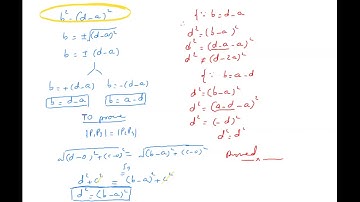 b² = (d-a)²
b = ±√(d-a)²
b = ± (d-a)
b = +(d-a) b = -(d-a)
b = d-a b = a-d
TO prove
|P₁P₃| = |P₂P₄|
√(d-0)²+(c-0)² = √(b-a)²+(c-0)²
d² + c² = (b-a)² + c²
d² = (b-a)²
{ ∵ b = d-a
d² = (b-a)²
d² = (d-a-a)²
d² ≠ (d-2a)²
{ ∵ b = a-d
d² = (b-a)²
d² = (a-d-a)²
d² = (-d)²
d² = d²
Proved